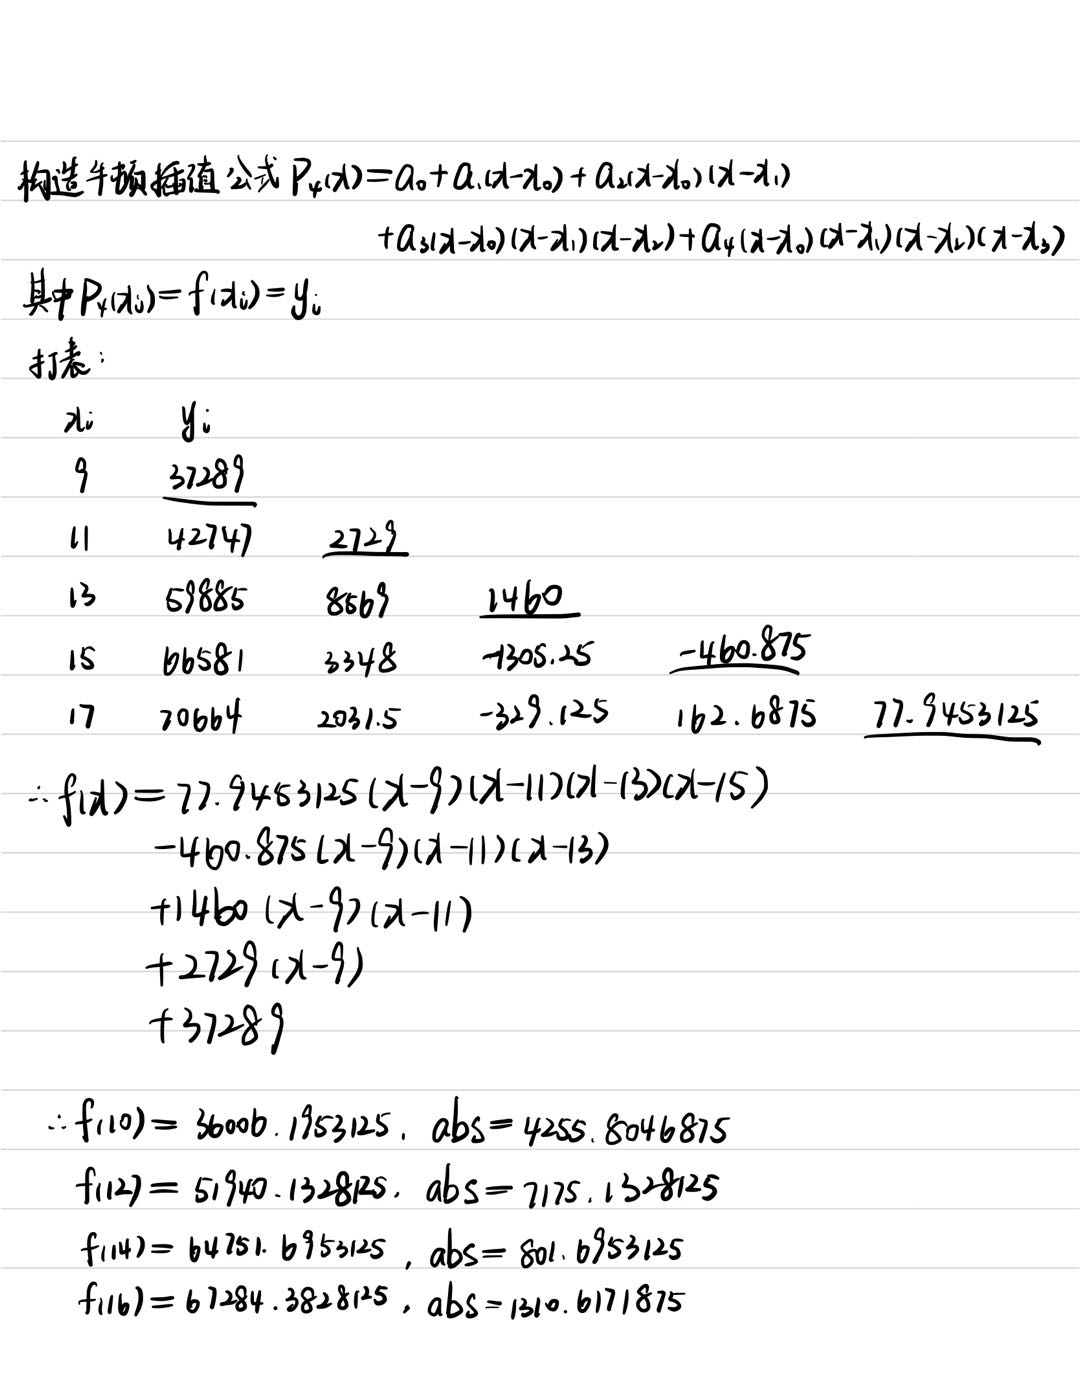 构造牛顿插值公式 P₄(x)=a₀+a₁(x-x₀)+a₂(x-x₀)(x-x₁)
+a₃(x-x₀)(x-x₁)(x-x₂)+a₄(x-x₀)(x-x₁)(x-x₂)(x-x₃)
其中P₄(xᵢ)=f(xᵢ)=yᵢ
打表:
xᵢ yᵢ
9 37289
11 42747 2729
13 59885 8569 1460
15 66581 3348 -1305.25 -460.875
17 70664 2031.5 -329.125 162.6875 77.9453125
∴f(x)=77.9453125(x-9)(x-11)(x-13)(x-15)
-460.875(x-9)(x-11)(x-13)
+1460(x-9)(x-11)
+2729(x-9)
+37289
∴f(10)=36006.1953125, abs=4255.8046875
f(12)=51940.1328125, abs=7175.1328125
f(14)=64751.6953125, abs=801.6953125
f(16)=67284.3828125, abs=1310.6171875